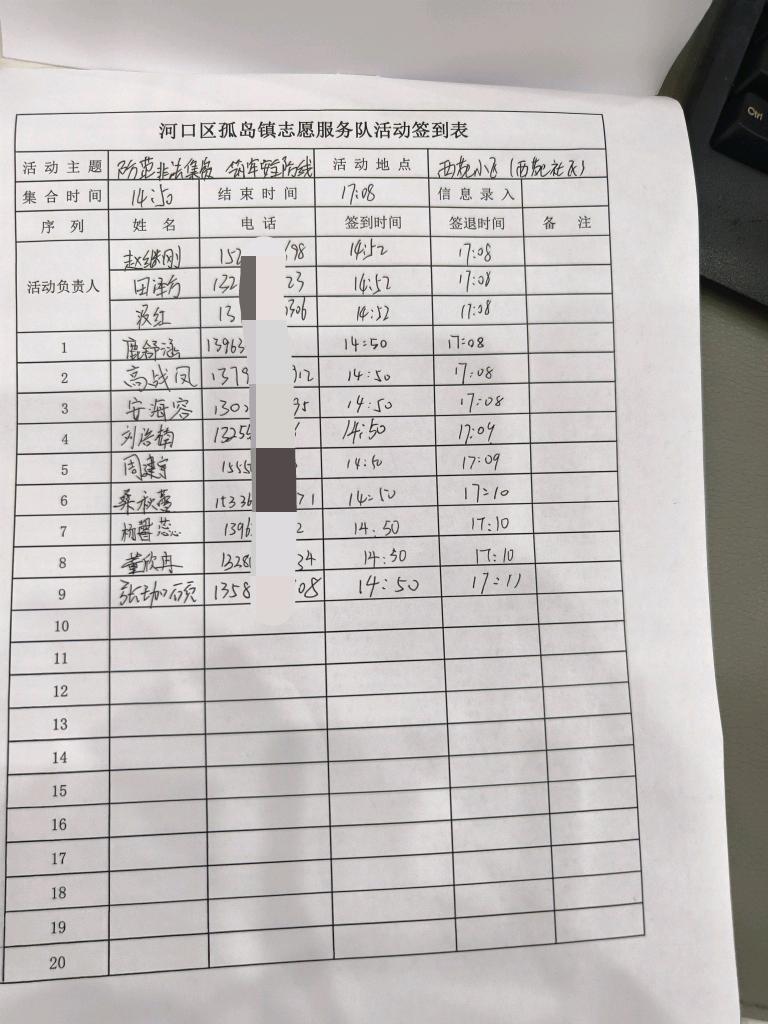 河口区孤岛镇志愿服务队活动签到表
活动主题 防范非法集资 筑牢安全防线 活动地点 西苑小区(西苑社区)
集合时间 14:50 结束时间 17:08 信息录入
序列 姓名 电话 签到时间 签退时间 备注
活动负责人
赵继刚 152 98 14:52 17:08
田泽方 132 23 14:52 17:08
红 13 306 14:52 17:08
1 鹿舒涵 13963 14:50 17:08
2 高战凤 1379 912 14:50 17:08
3 安海容 130 35 14:50 17:08
4 刘浩楠 13255 14:50 17:09
5 周建宇 1555 14:50 17:09
6 桑秋蕾 15336 71 14:50 17:10
7 杨馨蕊 1396 2 14:50 17:10
8 董欣冉 1328 34 14:50 17:10
9 张珈硕 1358 08 14:50 17:11
10
11
12
13
14
15
16
17
18
19
20
Ctrl